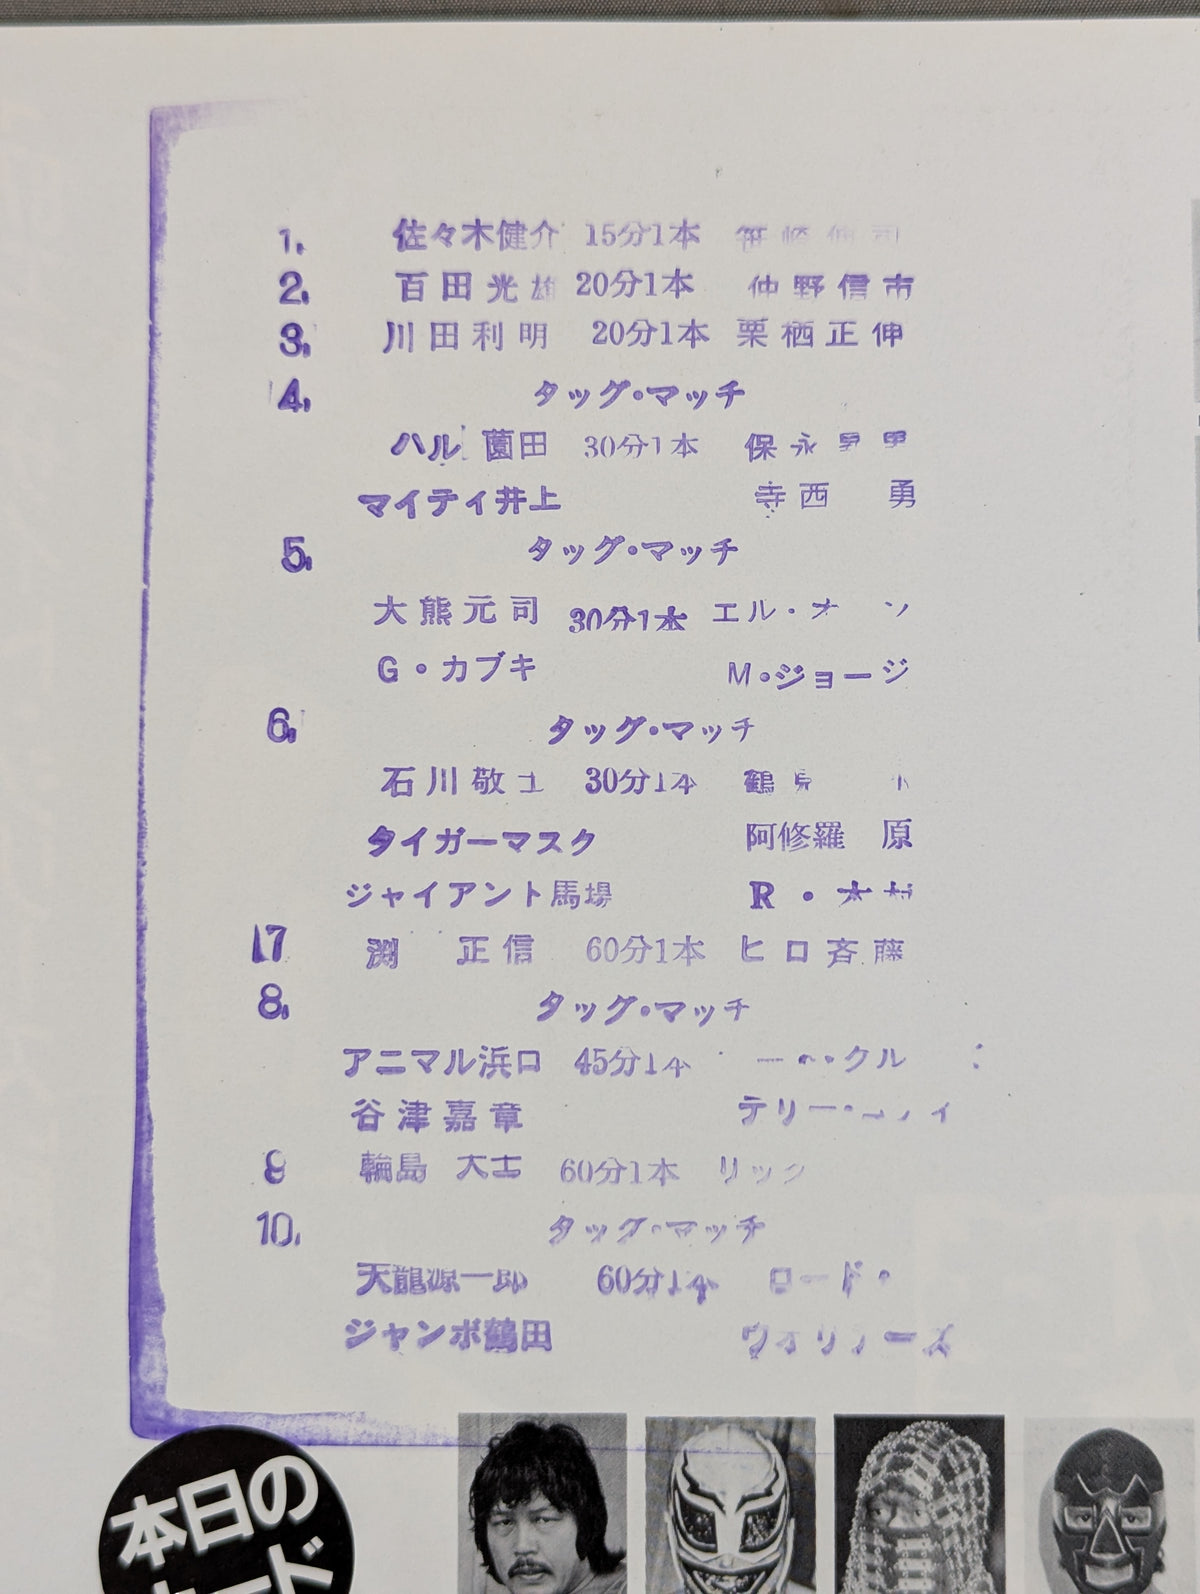 1. 佐々木健介 15分1本 笹崎伸司
2. 百田光雄 20分1本 仲野信市
3. 川田利明 20分1本 栗栖正伸
4. タッグ・マッチ
ハル薗田 30分1本 保永昇男
マイティ井上 寺西 勇
5. タッグ・マッチ
大熊元司 30分1本 エル・
G・カブキ M・ジョージ
6. タッグ・マッチ
石川敬士 30分1本 鶴見
タイガーマスク 阿修羅 原
ジャイアント馬場 R・木村
7 渕 正信 60分1本 ヒロ斉藤
8. タッグ・マッチ
アニマル浜口 45分1本 クル
谷津嘉章 テリー・
9 輪島 大士 60分1本 リック
10. タッグ・マッチ
天龍源一郎 60分1本 ロード・
ジャンボ鶴田 ウォリアーズ
本日の
カード